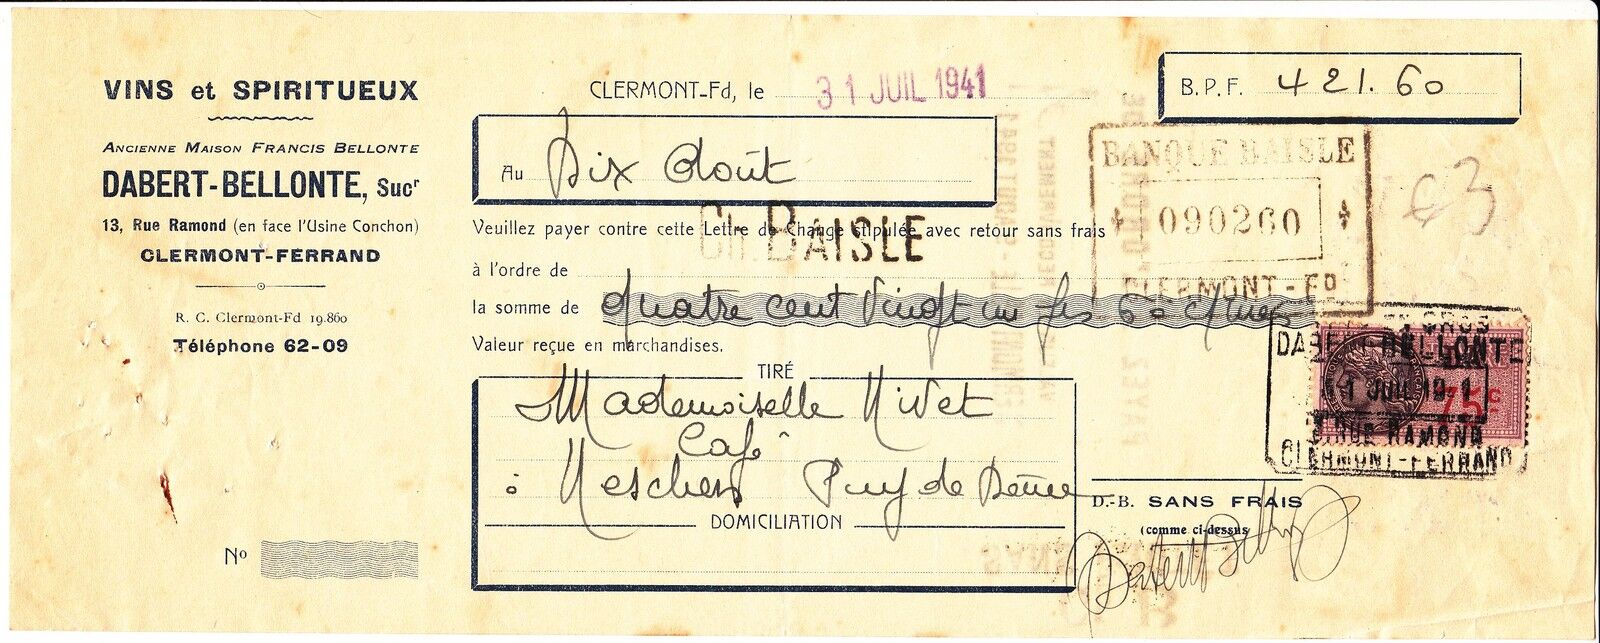 VINS et SPIRITUEUX
Ancienne Maison Francis Bellonte
DABERT-BELLONTE, Sucr
13, Rue Ramond (en face l'Usine Conchon)
CLERMONT-FERRAND
R. C. Clermont-Fd 19.860
Téléphone 62-09
No
CLERMONT-Fd, le 31 JUIL 1941
B.P.F. 421.60
Au Dix Août
Veuillez payer contre cette Lettre de Change stipulée avec retour sans frais
Ch. BAISLE
à l'ordre de
la somme de quatre cent vingt un frs 60 cmes
Valeur reçue en marchandises.
TIRÉ
Mademoiselle Nivet
Café
à Neschers Puy de Dôme
DOMICILIATION
BANQUE BAISLE
090260
CLERMONT-FD
63
EN GROS
DABERT-BELLONTE
1 JUIL 1941
75c
RUE RAMOND
CLERMONT-FERRAND
D.-B. SANS FRAIS
(comme ci-dessus
Dabert Bellonte